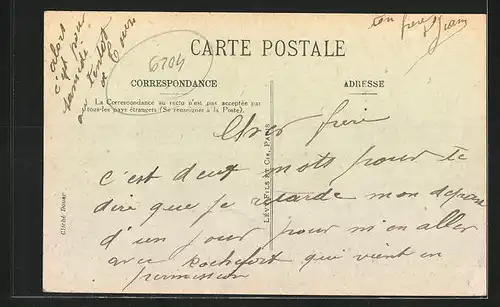 CARTE POSTALE
6204
CORRESPONDANCE
ADRESSE
La Correspondance au recto n'est pas acceptée par
tous les pays étrangers (Se renseigner à la Poste).
Cher frère
c'est deux mots pour te
dire que je retarde mon depart
d'un jour pour m'en aller
avec Rochefort qui vient en
permission
alors
c'est
samedi
au
ton frère
LÉVY FILS ET Cie, PARIS
Cliché Douar